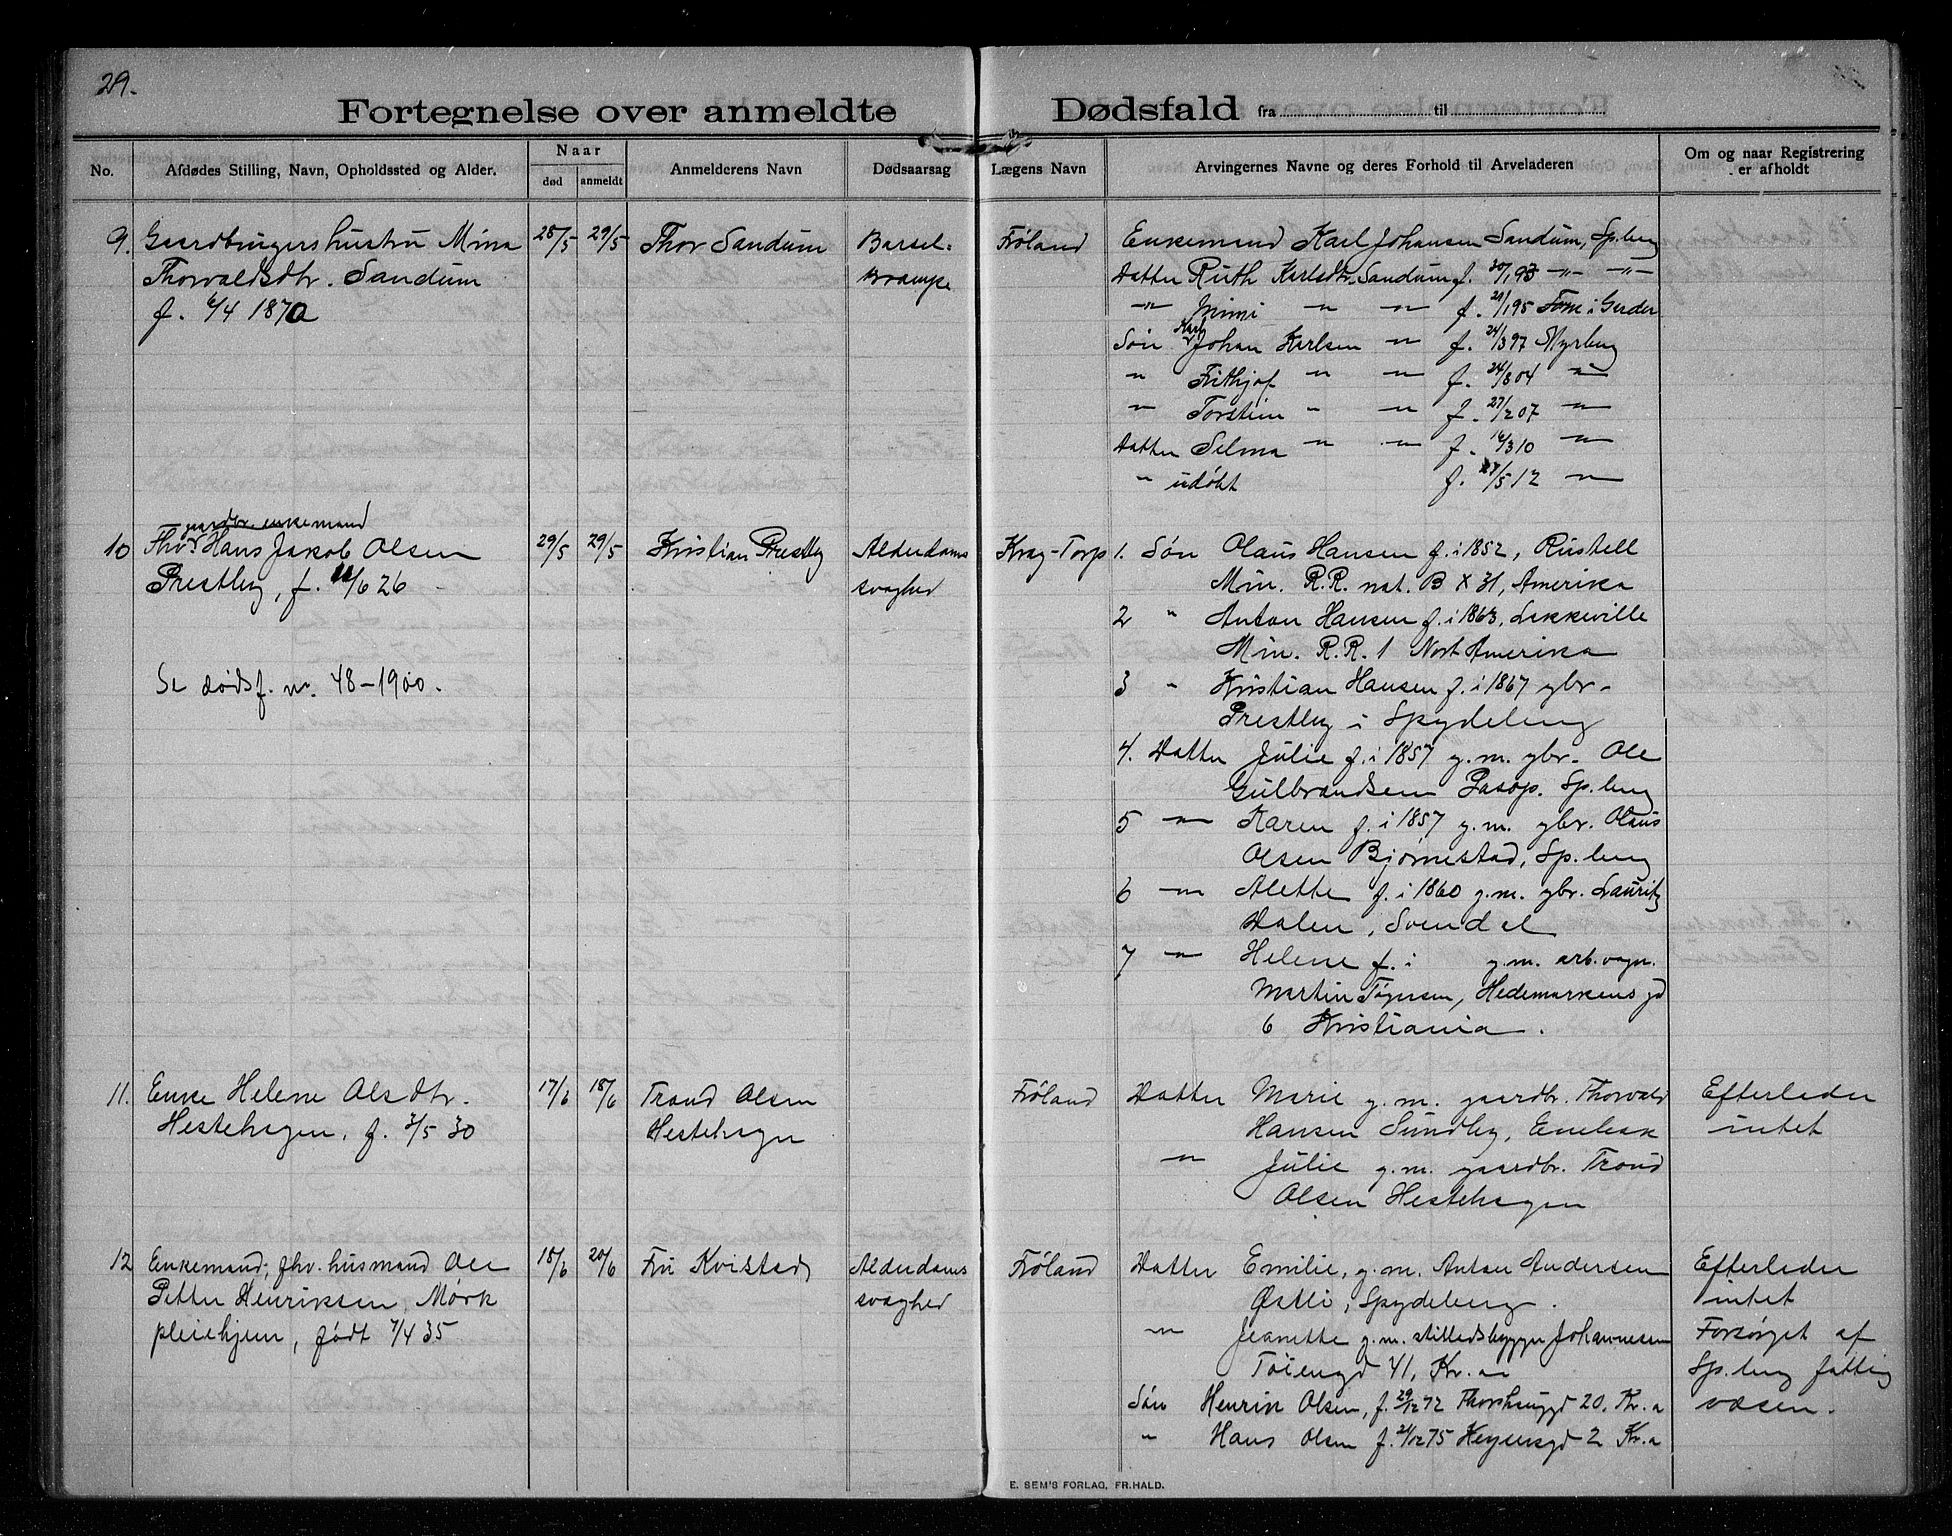 29.
Fortegnelse over anmeldte Dødsfald fra til
No.
Afdødes Stilling, Navn, Opholdssted og Alder.
Naar
død
anmeldt
Anmelderens Navn
Dødsaarsag
Lægens Navn
Arvingernes Navne og deres Forhold til Arveladeren
Om og naar Registrering
er afholdt
9. Gaardbrugers hustru Mina
Thorvaldsdtr. Sandum
f. 6/4 1870
28/5
29/5
Thor Sandum
Barsel-
krampe
Frøland
Enkemand Karl Johansen Sandum, Sp.berg
Datter Ruth Karlsdtr. Sandum f. 20/1 93 -"- -"-
-"- Mimi -"- -"- f. 21/1 95 Tom i Gerder
Karl
Søn Johan Karlsen -"- f. 24/3 97 Myrberg
" Frithjof " -"- f. 24/8 04 -"-
" Torstein " -"- f. 27/2 07 -"-
Datter Selma " -"- f. 16/3 10 -"-
" udøbt f. 27/5 12 -"-
gaardbr. enkemand
10 Fhv. Hans Jakob Olsen
Prestby, f. 11/6 26
Se dødsf. nr. 48-1900.
29/5
29/5
Kristian Prestby
Alderdoms
svaghed
Krag-Torp
1. Søn Olaus Hansen f. i 1852, Rustell
Min. R.R. nat. B X 31, Amerika
2 " Anton Hansen f. i 1863, Lakkeville
Min. R.R. 1 Nort Amerika
3 " Kristian Hansen f. i 1867 gbr.
Prestby i Spydeberg
4. Datter Julie f. i 1857 g.m. gbr. Ole
Gulbrandsen Pasop. Sp.berg
5 -"- Karen f. i 1857 g.m. gbr. Olaus
Olsen Bjørnestad, Sp.berg
6 -"- Alette f. i 1860 g.m. gbr. Lauritz
Dalen, Svendal
7 -"- Helene f. i g.m. arb.vogn.
Martin Tøgersen, Hedemarkens gd
6, Kristiania.
11. Enke Helene Olsdtr.
Hestehagen, f. 3/5 30
17/6
18/6
Trond Olsen
Hestehagen
Frøland
Datter Marie g.m. gaardbr. Thorvald
Hansen Sundby, Enebak
-"- Julie g.m. gaardbr. Trond
Olsen Hestehagen
Efterlader
intet
12 Enkemand, fhv. husmand Ole
Petter Henriksen, Mørk
pleiehjem, født 7/4 35
18/6
20/6
Fru Kvistad
Alderdoms
svaghed
Frøland
Datter Emilie, g.m. Anton Andersen
Østli, Spydeberg.
-"- Jeanette g.m. stilladsbygger Johannesen
Tøiengd 41, Kr.a
Søn Henrik Olsen, f. 29/12 72 Thorshauggd 20. Kr.a
" Hans Olsen f. 21/12 75 Heyensgd 2 Kr.a
Efterlader
intet
Forsørget af
Sp.berg fattig
væsen.
E. SEM'S FORLAG, FR.HALD.